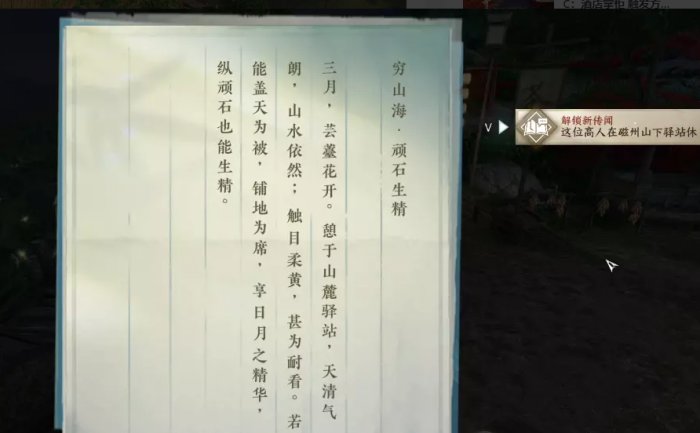 穷山海·顽石生精
三月，芸薹花开。憩于山麓驿站，天清气
朗，山水依然；触目柔黄，甚为耐看。若
能盖天为被，铺地为席，享日月之精华，
纵顽石也能生精。
V
解锁新传闻
这位高人在磁州山下驿站休